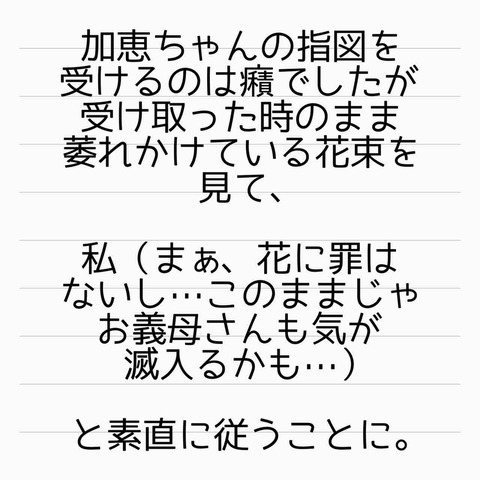 加恵ちゃんの指図を
受けるのは癪でしたが
受け取った時のまま
萎れかけている花束を
見て、
私（まぁ、花に罪は
ないし…このままじゃ
お義母さんも気が
滅入るかも…）
と素直に従うことに。